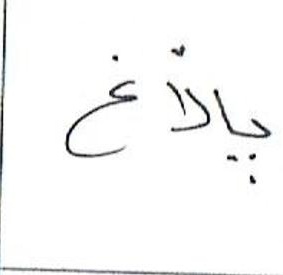 پالاغ